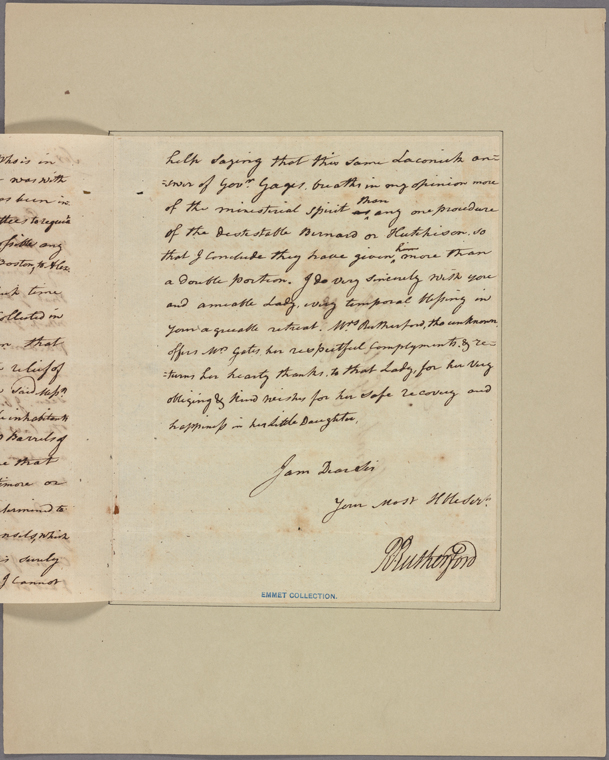 This is in
- was with
as been in
ttees to requir
ossible any
Boston, &
time
ollected in
that
relief of
said
inhabitants
Barrels of
that
timore or
termin'd to
which
is surely
I Cannot
help saying that this same Laconick an=
=swer of Govr. Gages, breaths in my opinion more
of the ministerial spirit than any one procedure
of the destestable Bernard or Hutchison, so
that I conclude they have given him more than
a double portion. I do very sincerely wish you
and amiable Lady, every temporal blessing in
your agreable retreat. Mrs. Rutherford, tho unknown
offers Mrs. Gates her respectful Complyments, & re=
=turns her hearty thanks, to that Lady, for her very
obliging & kind wishes for her safe recovery and
happiness in her little Daughter.
I am Dear Sir
Your Most Hble Servt.
RRutherford
EMMET COLLECTION.